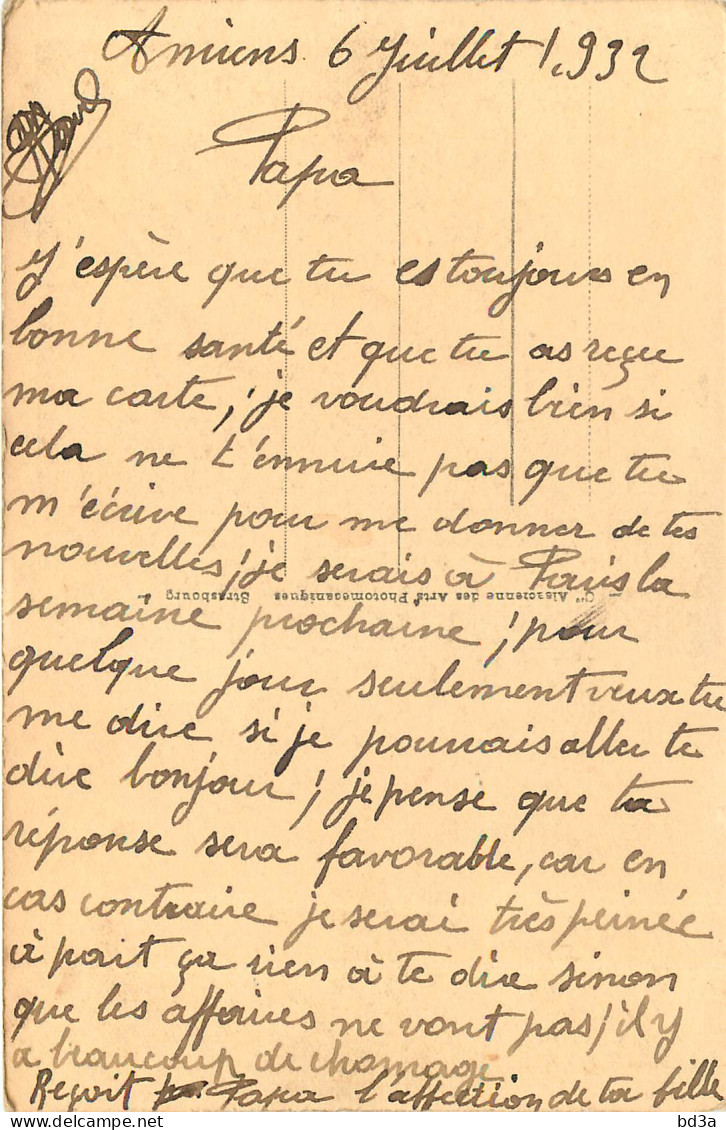 Amiens 6 Juillet 1.932
Papa
J'espère que tu es toujours en
bonne santé et que tu as reçue
ma carte, je voudrais bien si
cela ne t'ennuie pas que tu
m'écrive pour me donner de tes
nouvelles; je serais à Paris la
Cie Alsacienne des Arts Photomécaniques Strasbourg
semaine prochaine; pour
quelque jour seulement veux tu
me dire si je pourrais aller te
dire bonjour; je pense que ta
réponse sera favorable, car en
cas contraire je serai très peinée
à part ça rien à te dire sinon
que les affaires ne vont pas, il y
a beaucoup de chomage
Reçoit Papa l'affection de ta fille
bd3a